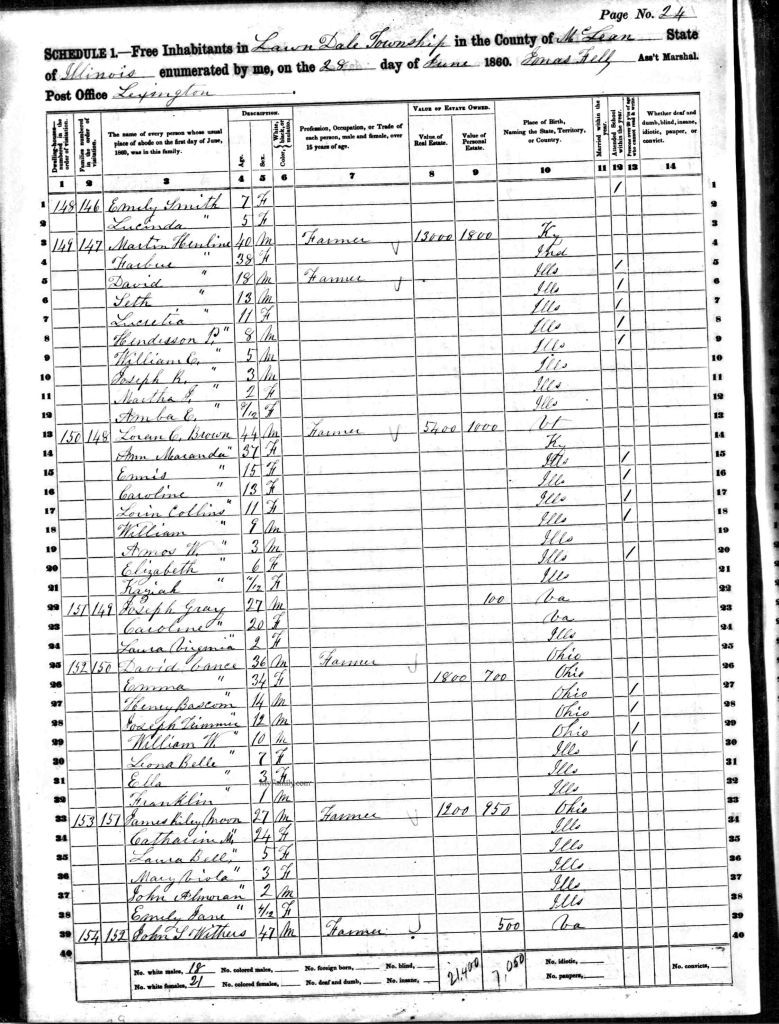 Page No. 24
SCHEDULE 1.—Free Inhabitants in Lawn Dale Township in the County of McLean State
of Illinois enumerated by me, on the 28 day of June 1860. Jonas Fell Ass't Marshal.
Post Office Lexington
DESCRIPTION. VALUE OF ESTATE OWNED.
Dwelling-houses—numbered in the order of visitation. Families numbered in the order of visitation. The name of every person whose usual place of abode on the first day of June, 1860, was in this family. Age. Sex. Color, White, black, or mulatto. Profession, Occupation, or Trade of each person, male and female, over 15 years of age. Value of Real Estate. Value of Personal Estate. Place of Birth, Naming the State, Territory, or Country. Married within the year. Attended School within the year. Whether deaf and dumb, blind, insane, idiotic, pauper, or convict.
1 2 3 4 5 6 7 8 9 10 11 12 13 14
1 148 146 Emily Smith 7 F / 1
2 Lucinda " 5 F 2
3 149 147 Martin Henline 40 M Farmer 13000 1800 Ky 3
4 " 38 F Ind 4
5 David " 18 M Farmer Ills / 5
6 Seth " 13 M Ills / 6
7 Lucretia " 11 F Ills / 7
8 Hendesson P. " 8 M Ills / 8
9 William C. " 5 M Ills / 9
10 Joseph R. " 3 M Ills 10
11 Martha J. " 2 F Ills 11
12 Amba E. " 9/12 F Ills 12
13 150 148 Loran C. Brown 44 M Farmer 5400 1000 Vt 13
14 Ann Maranda " 37 F Ky 14
15 Ennis " 15 F Ills / 15
16 Caroline " 13 F Ills / 16
17 Lorin Collins " 11 F Ills / 17
18 William " 9 M Ills / 18
19 Amos W. " 3 M Ills 19
20 Elizabeth " 6 F Ills / 20
21 Kaziah " F Ills 21
22 151 149 Joseph Gray 27 M 100 Va 22
23 Caroline " 20 F Va 23
24 Laura Virginia " 2 F Ills 24
25 152 150 David Vance 36 M Farmer 1800 700 Ohio 25
26 Emma " 34 F Ohio 26
27 Henry Bascom " 14 M Ohio / 27
28 Joseph " 12 M Ohio / 28
29 William W. " 10 M Ohio / 29
30 Leona Belle " 7 F Ills / 30
31 Ella " 3 F Ills 31
32 Franklin " 1 M Ills 32
33 153 151 James Riley Moon 27 M Farmer 1200 950 Ohio 33
34 Catharine M. " 24 F Ills 34
35 Laura Bell " 5 F Ills 35
36 Mary Viola " 3 F Ills 36
37 John Almoran " 2 M Ills 37
38 Emily Jane " 4/12 F Ills 38
39 154 152 John S Withers 47 M Farmer 500 Va 39
40 40
No. white males, 18 No. colored males, No. foreign born, No. blind, 21,400 7,050 No. idiotic, No. convicts,
No. white females, 21 No. colored females, No. deaf and dumb, No. insane, No. paupers,